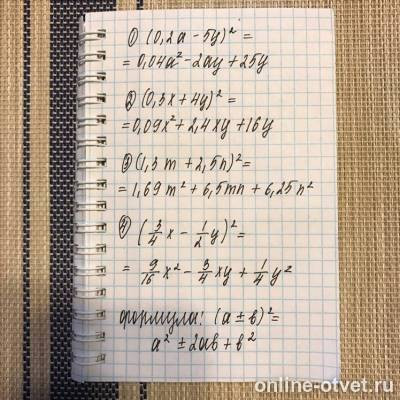 1) (0,2a - 5y)² =
= 0,04a² - 2ay + 25y
2) (0,3x + 4y)² =
= 0,09x² + 2,4xy + 16y
3) (1,3m + 2,5n)² =
= 1,69m² + 6,5mn + 6,25n²
4) (3/4 x - 1/2 y)² =
= 9/16 x² - 3/4 xy + 1/4 y²
формула: (a ± b)² =
a² ± 2ab + b²
online-otvet.ru